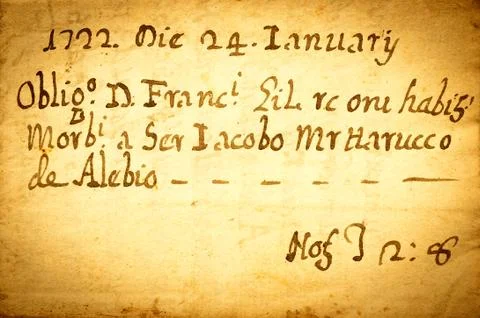 1722. Die 24. Ianuarij
Obligº. D. Franc.i Lil. rc onu habiz.
Morb.i a Ser Iacobo
de Alebio — — — — — —
Nof J 2: 8